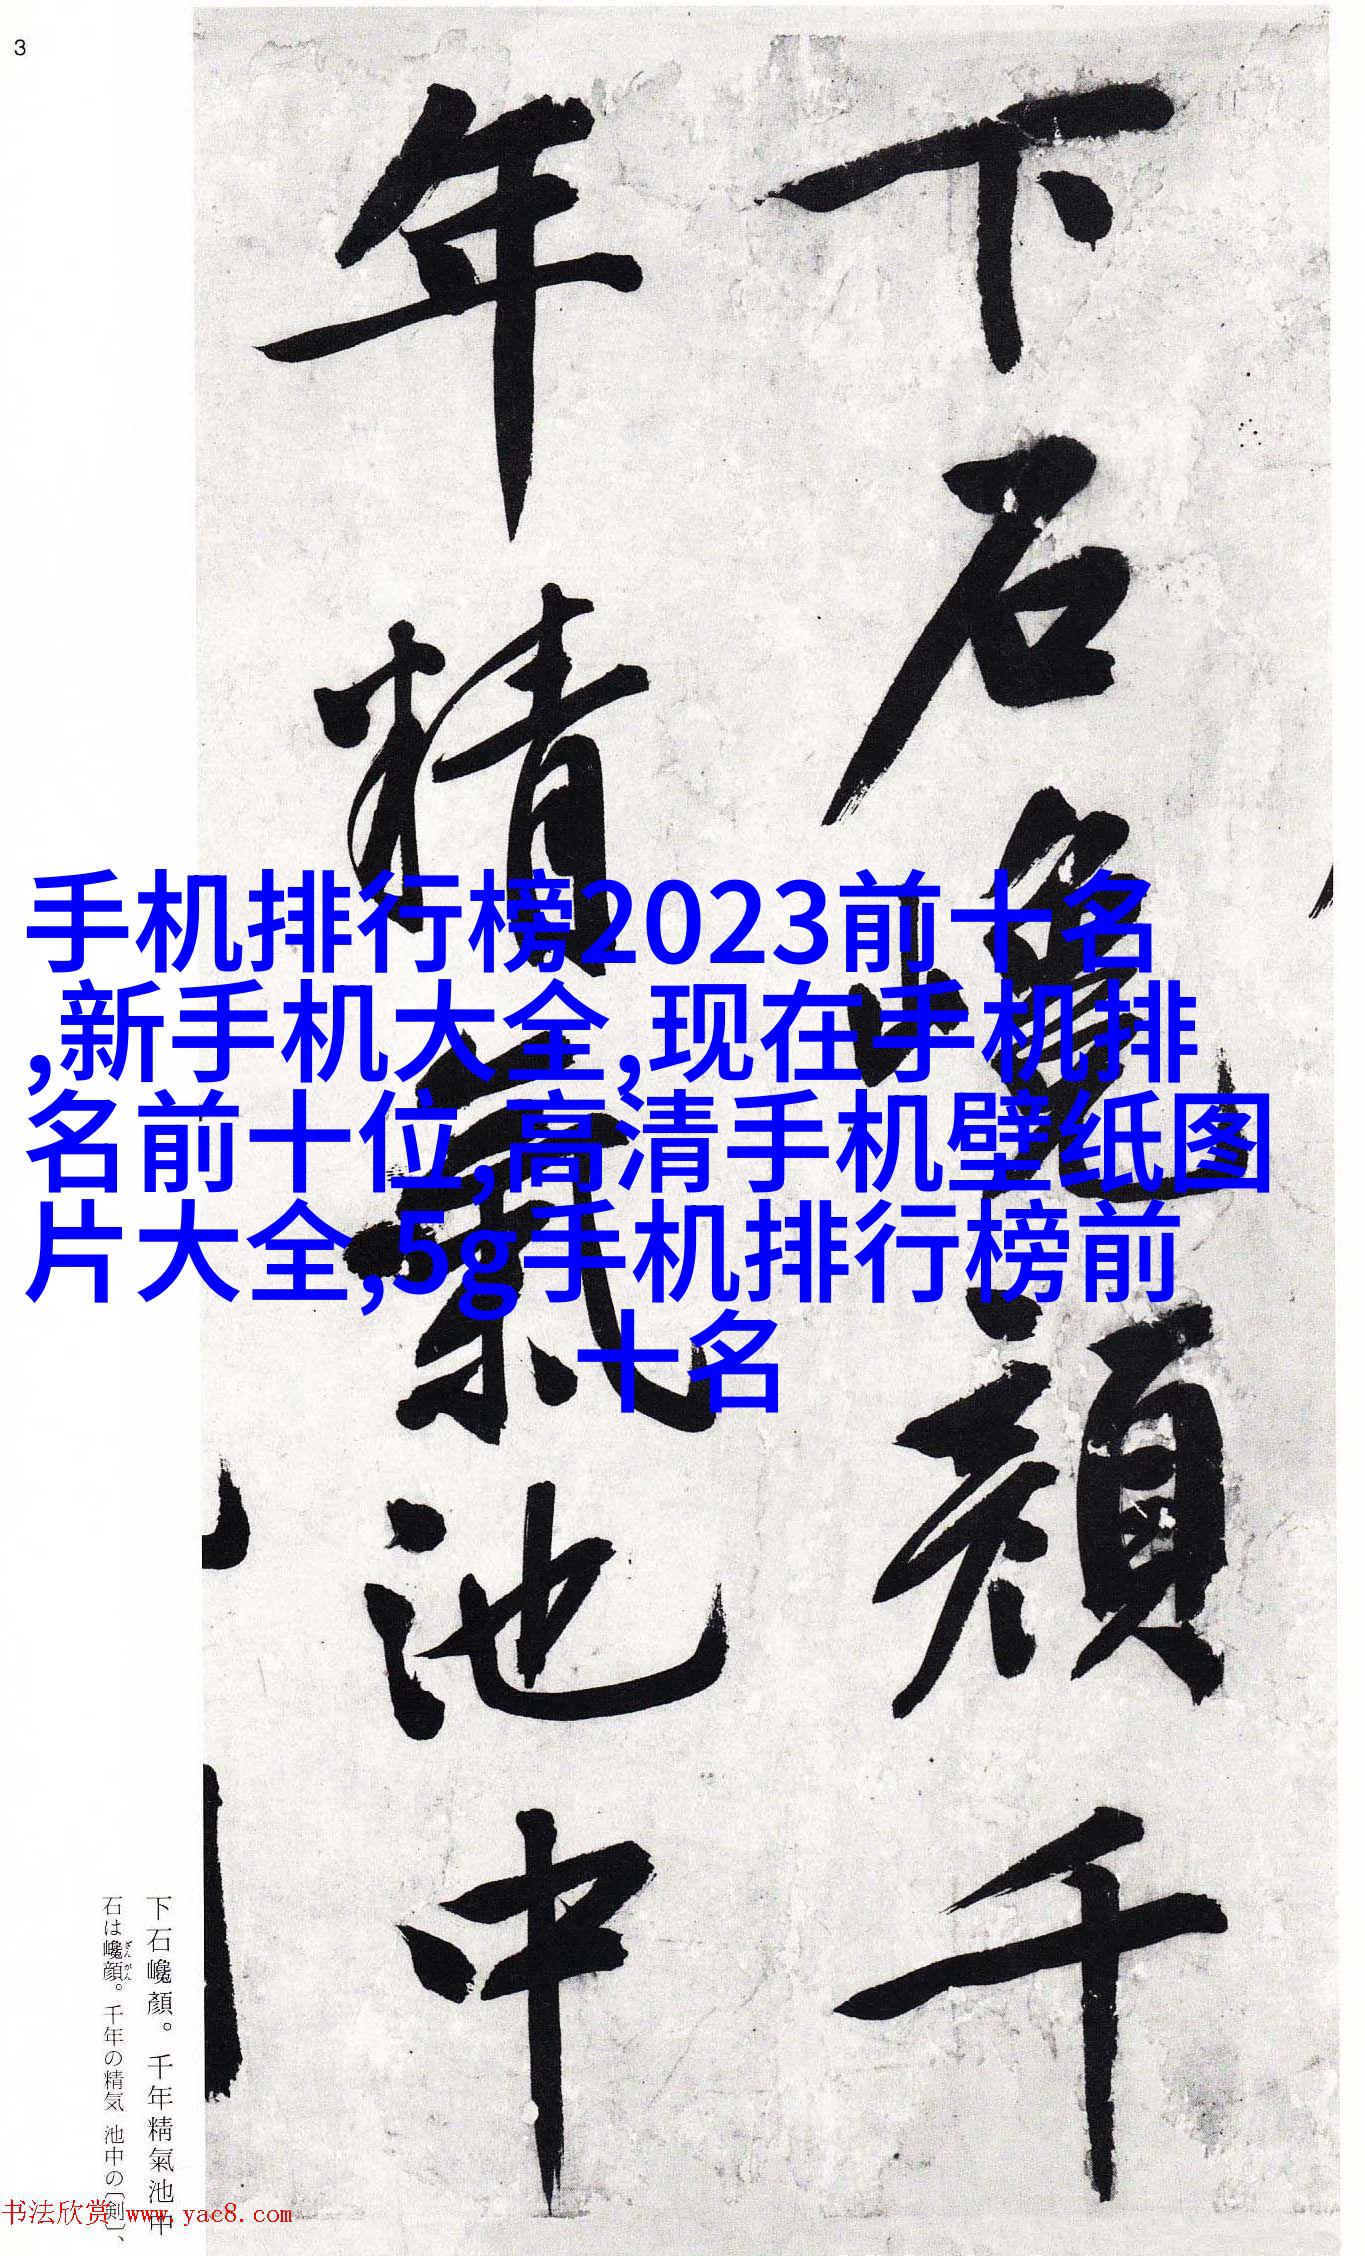 3
下石巉顏千
年精氣池中
手机排行榜2023前十名
,新手机大全,现在手机排
名前十位,高清手机壁纸图
片大全,5g手机排行榜前
十名
下石巉顏。千年精氣池中
石は巉顔。千年の精気 池中の〔剣〕、
ざんがん
书法欣赏 www.yac8.com